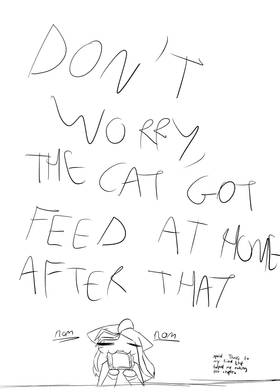 DON'T
WORRY,
THE CAT GOT
FEED AT HOME
AFTER THAT
nom nom